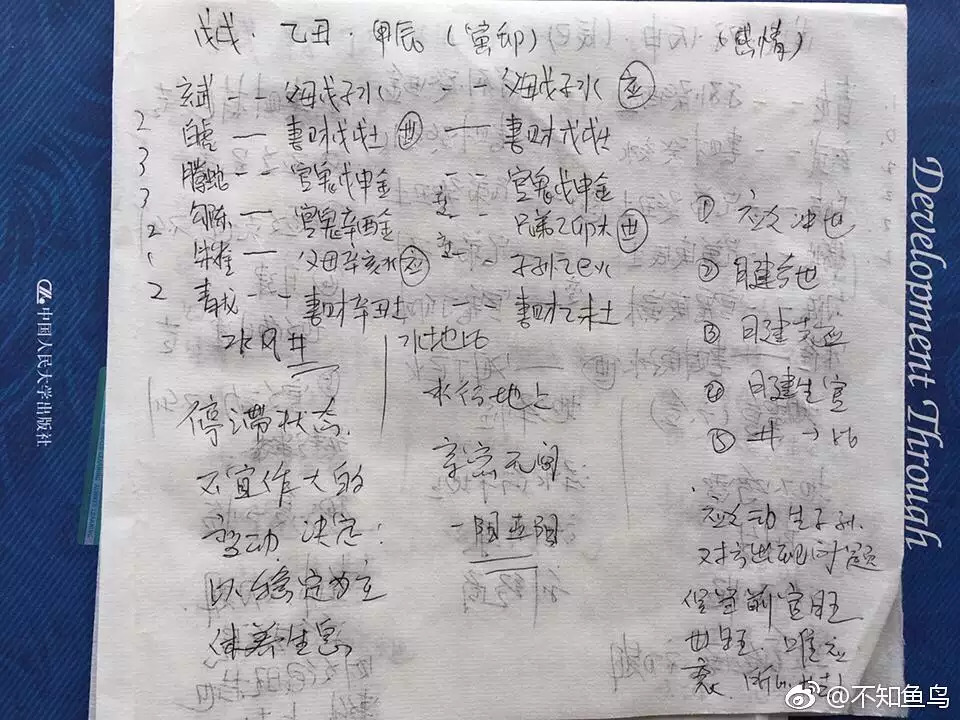 戊戌·乙丑·甲辰(寅卯) (感情)
玄武 -- 父母戊子水 -- 父母戊子水 应
2 白虎 — 妻财戊戌土 世 — 妻财戊戌土
3 腾蛇 -- 官鬼戊申金 -- 官鬼戊申金
3 勾陈 — 官鬼辛酉金 -- 兄弟乙卯木 世
2 朱雀 — 父母辛亥水 应 -- 子孙乙巳火
2 青龙 -- 妻财辛丑土 妻财乙未土
水风井
水地比
停滞状态
不宜作大的
变动 决定:
以稳定为主
休养生息
水行地上
亲密无间
一阳五阴
①
② 日建合世
③ 日建克应
④ 日建生官
⑤ 井→比
官旺
世旺
中国人民大学出版社
Development Through
@不知鱼鸟